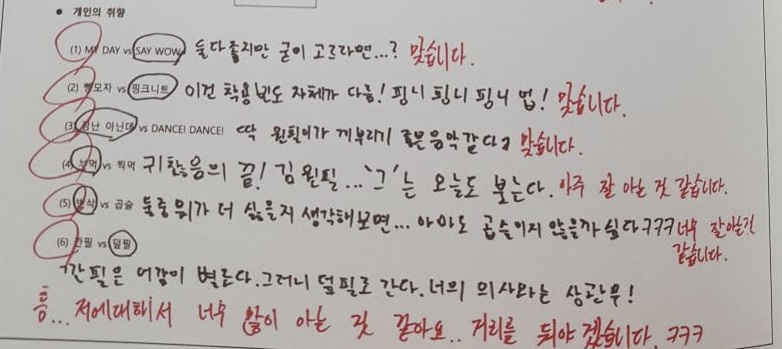 • 개인의 취향
(1) MY DAY vs SAY WOW 둘다좋지만 굳이 고르라면...? 맞습니다.
(2) 빵모자 vs 핑크니트 이건 착용빈도 자체가 다름! 핑니 핑니 핑니 법! 맞습니다.
(3) 장난 아닌데 vs DANCE! DANCE! 딱 원필이가 끼부리기 좋은음악같다고 맞습니다.
(4) 부먹 vs 찍먹 귀찮음의 끝! 김원필...'그'는 오늘도 붓는다. 아주 잘 아는 것 같습니다.
(5) 반삭 vs 곱슬 둘중뭐가 더 싫을지 생각해보면... 아마도 곱슬이지 않을까 싶다ㅋㅋㅋ 너무 잘아는것
같습니다.
(6) 깐필 vs 덮필
깐필은 어감이 별로다.그러니 덮필로 간다.너의 의사와는 상관무!
흠... 저에대해서 너무 많이 아는 것 같아요.. 거리를 둬야 겠습니다. ㅋㅋㅋ